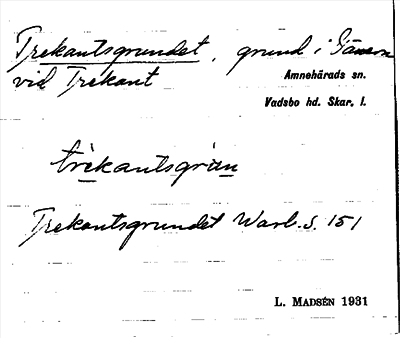 Trekantsgrundet, grund i Vänern
vid Trekant
Amnehärads sn.
Vadsbo hd. Skar. l.
trèkantsgrùn
Trekantsgrundet Warb. S. 151
L. MADSÉN 1931